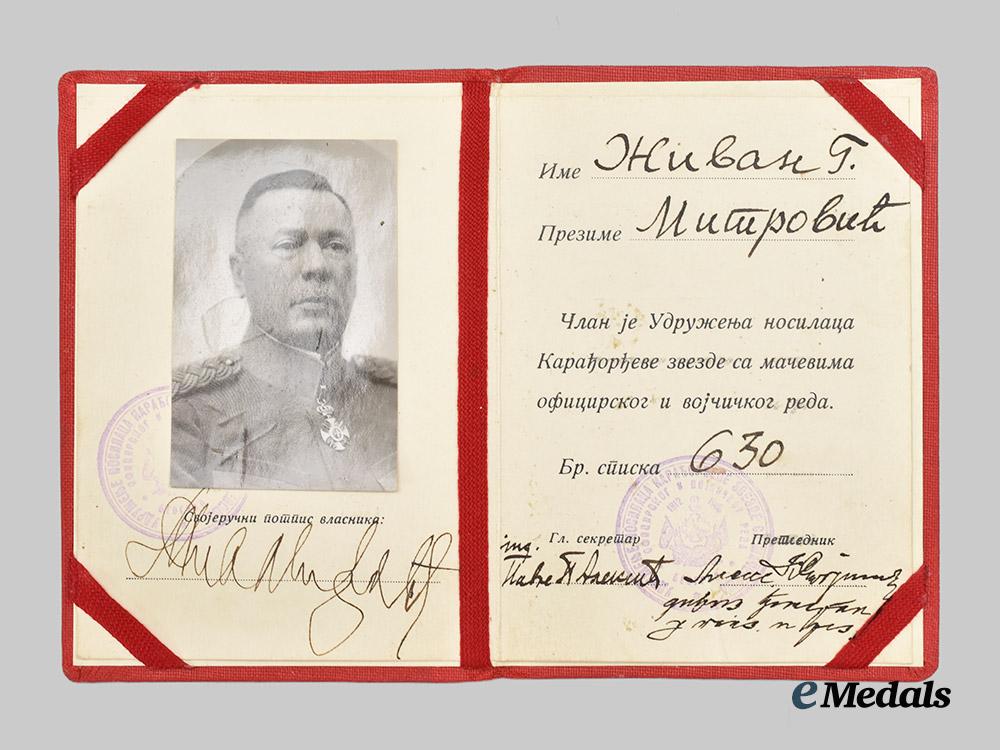 Својеручни потпис власника:
Име Живан Г.
Презиме Митровић
Члан је Удружења носилаца
Карађорђеве звезде са мачевима
официрског и војничког реда.
Бр. списка 630
Гл. секретар Претседник
инж.
Павле
дивиз. ђенерал
у пенз.
eMedals